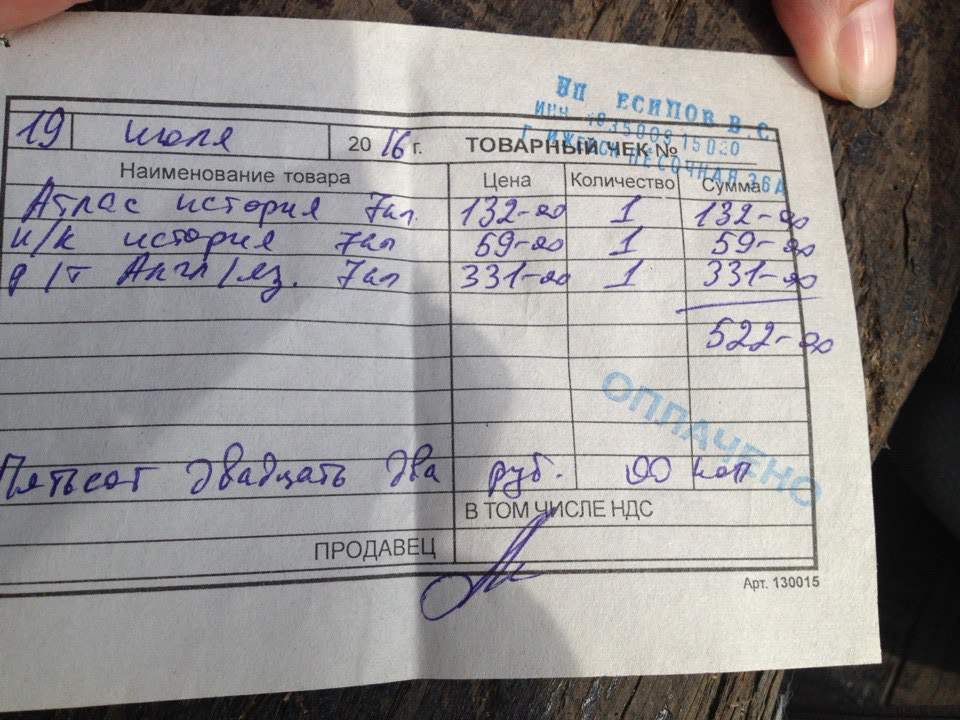 ИП ЕСИПОВ В.С.
ИНН
Г. ИЖЕВСК ПЕСОЧНАЯ 36А
19 июля 2016 г. ТОВАРНЫЙ ЧЕК №
Наименование товара Цена Количество Сумма
Атлас история 7кл. 132-00 1 132-00
к/к история 7кл 59-00 1 59-00
р/т Англ/яз. 7кл 331-00 1 331-00
522-00
ОПЛАЧЕНО
Пятьсот двадцать два руб. 00 коп
В ТОМ ЧИСЛЕ НДС
ПРОДАВЕЦ
Арт. 130015